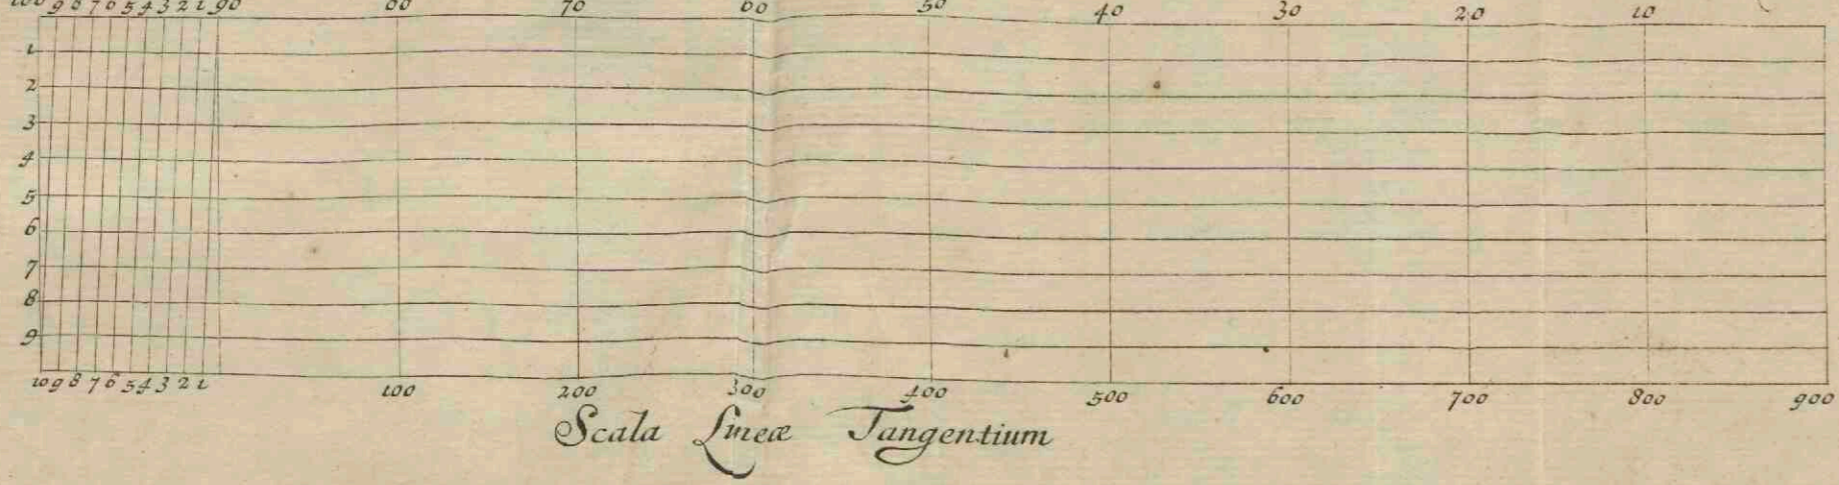 100 9 8 7 6 5 4 3 2 1 90 80 70 60 50 40 30 20 10
1
2
3
4
5
6
7
8
9
10 9 8 7 6 5 4 3 2 1 100 200 300 400 500 600 700 800 900
Scala Lineæ Tangentium